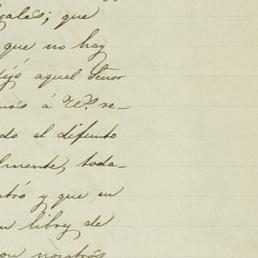 gales; que
que no hay
dejó aquel Señor
mos á Vs. re-
do el difunto
lmente, toda-
ntró y que en
su libro, de
con nosotros